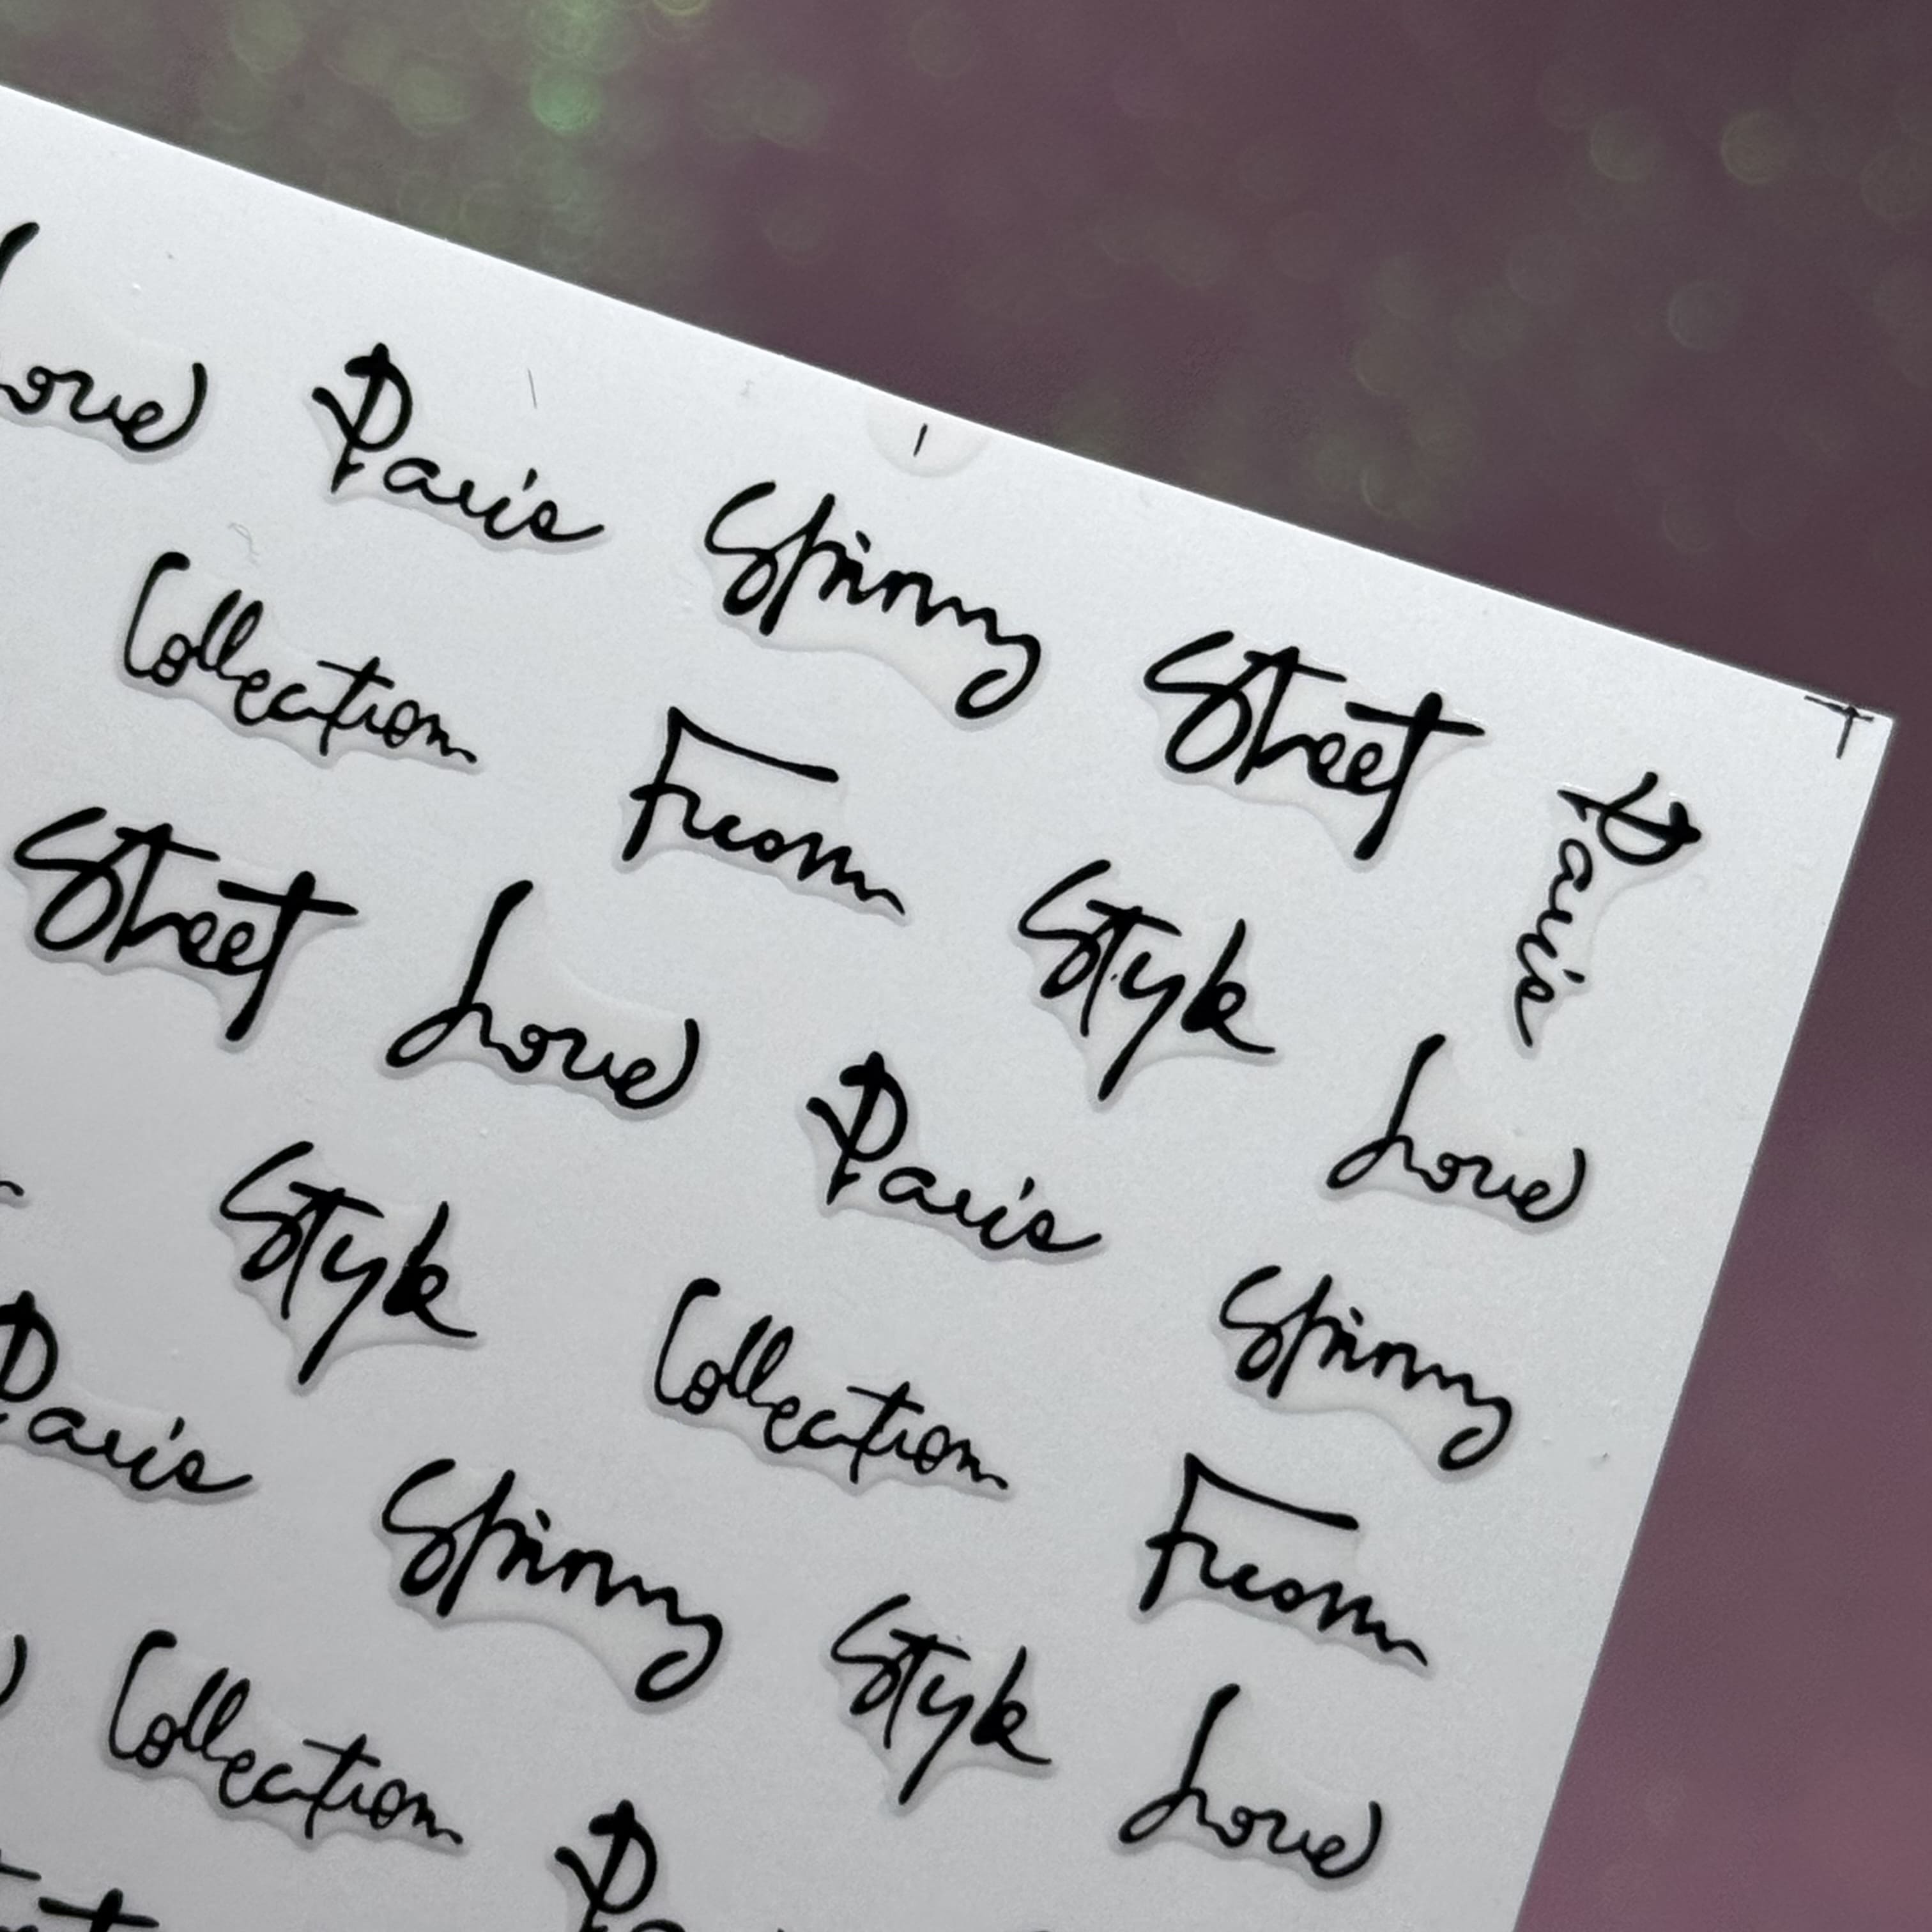 Love Paris Spinny Street Paris
Collection From Style Love
Street Love Paris Spinny
Style Collection From
Paris Spinny Style Love
Collection